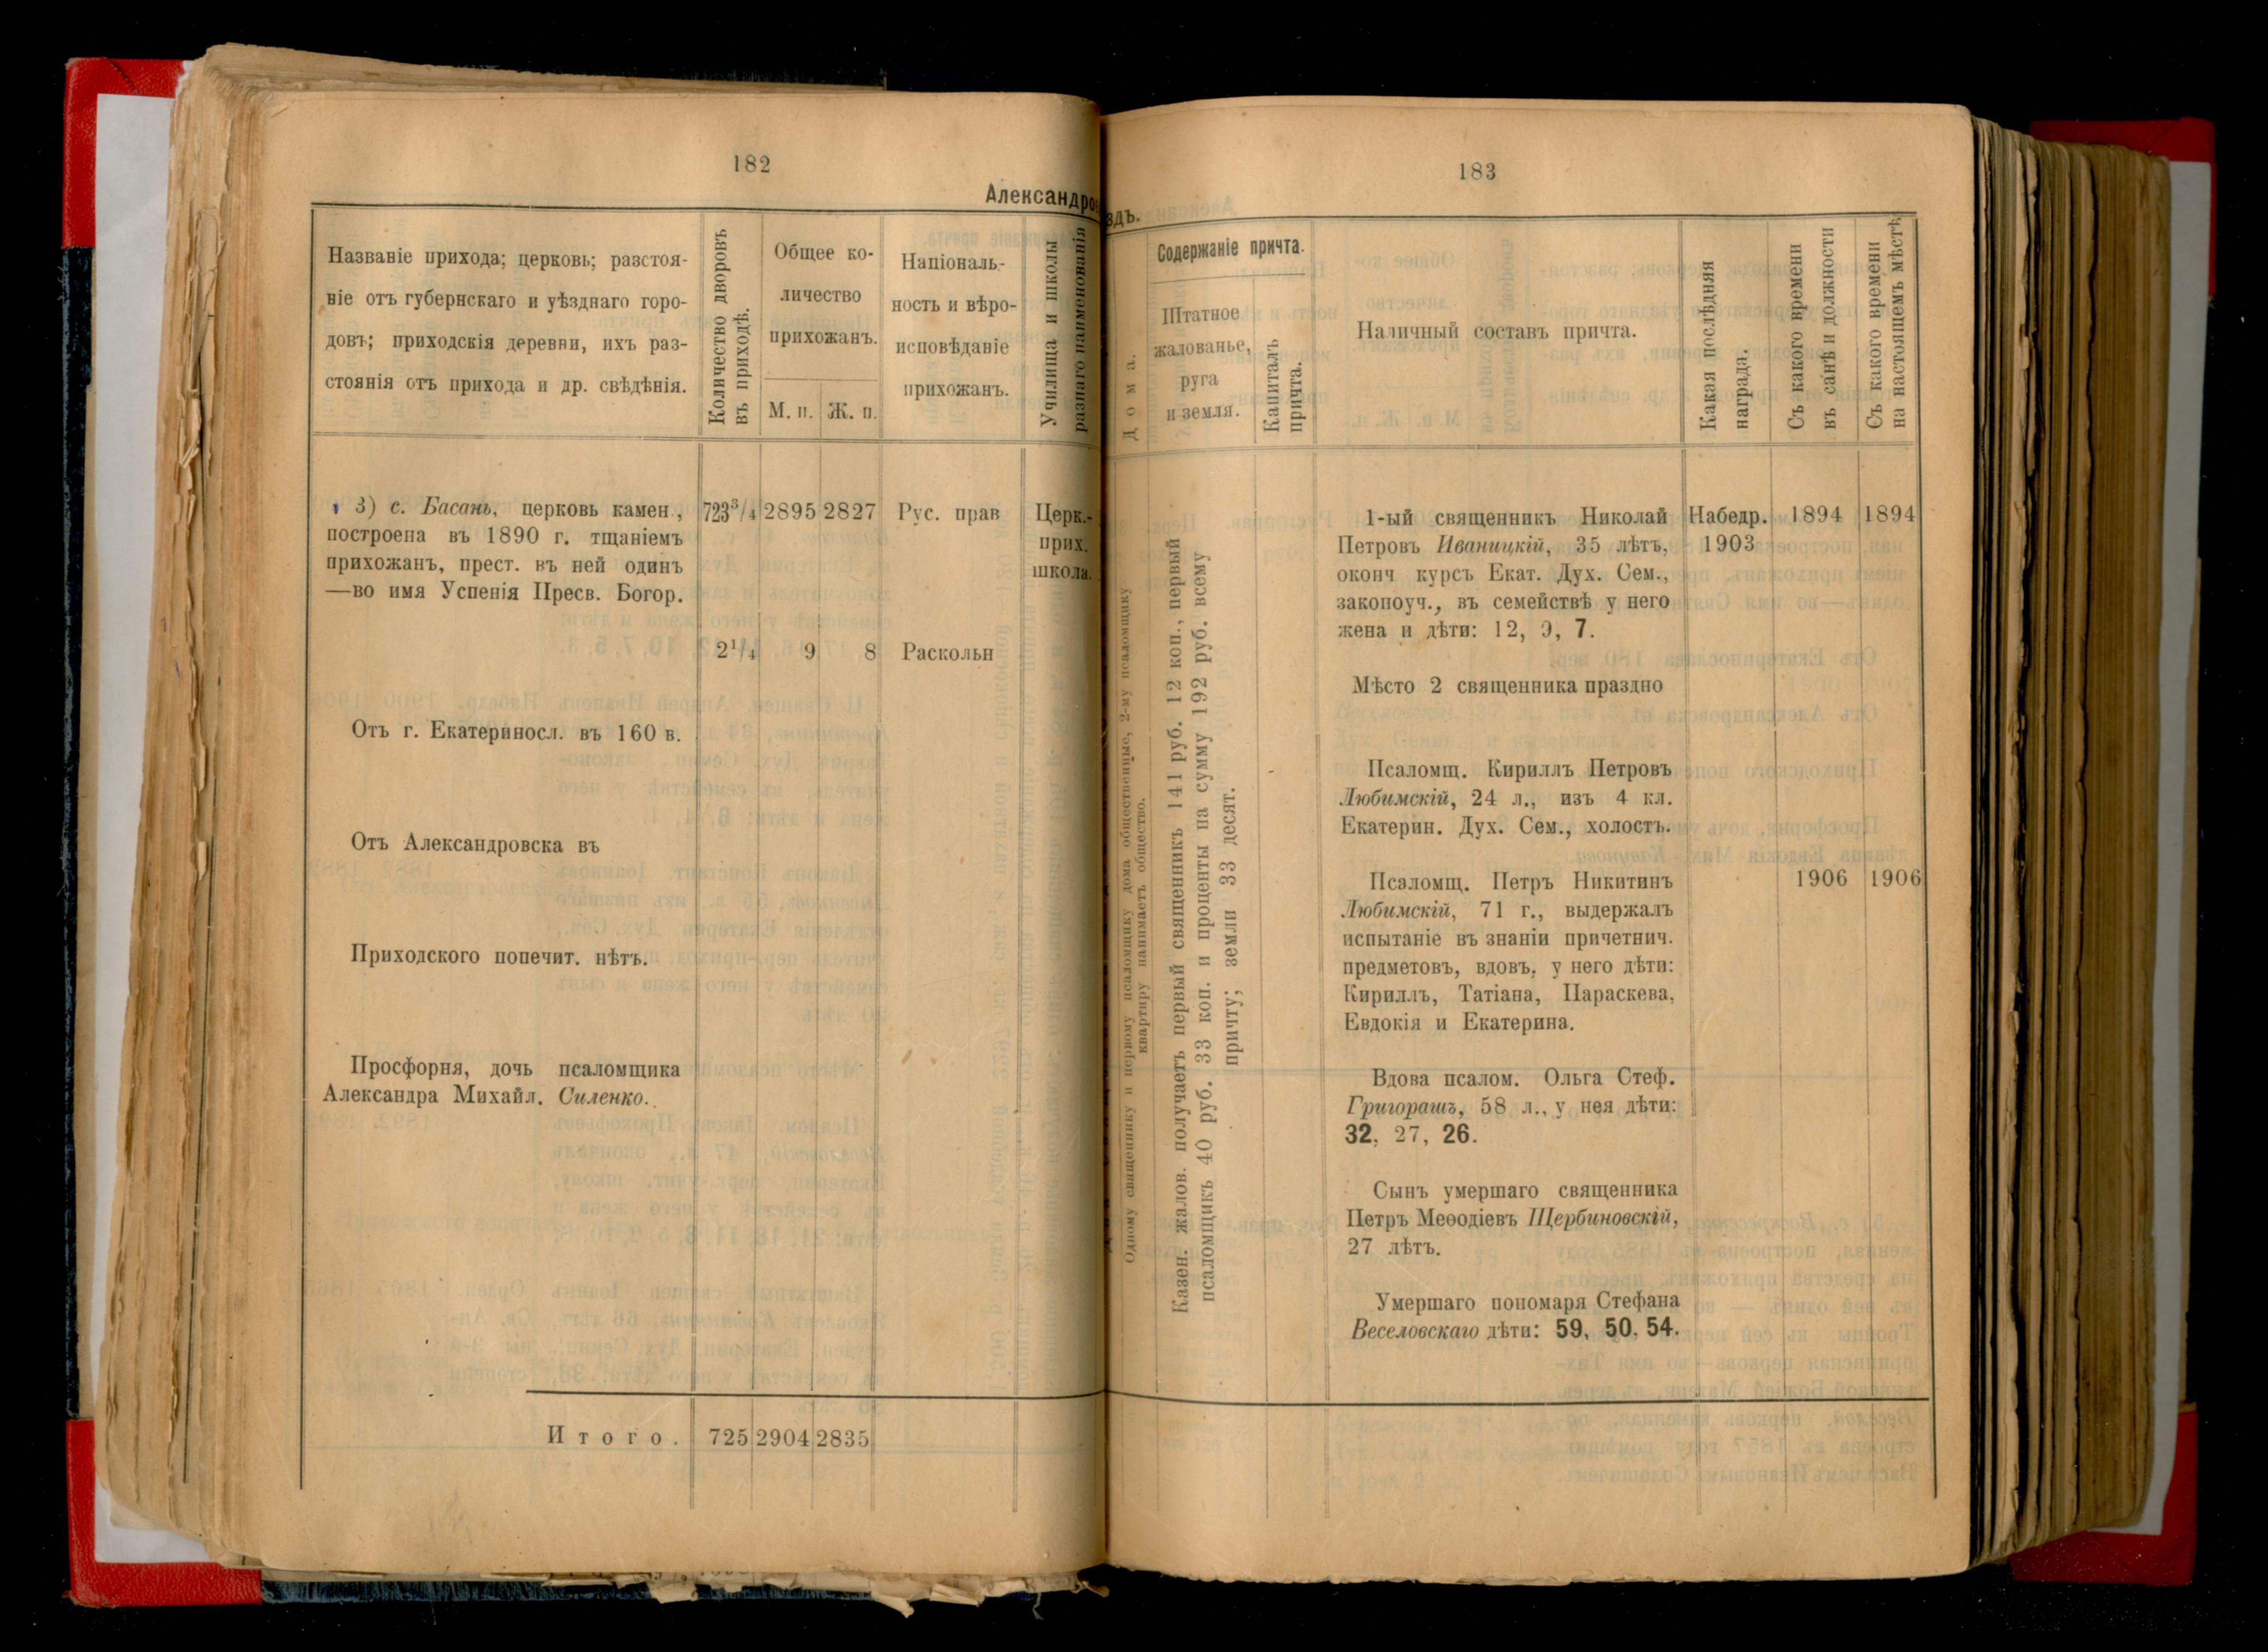 182
Александров
Названіе прихода; церковь; разстоя-
ніе отъ губернскаго и уѣзднаго горо-
довъ; приходскія деревни, ихъ раз-
стоянія отъ прихода и др. свѣдѣнія.
Количество дворовъ
въ приходѣ.
Общее ко-
личество
прихожанъ.
М. п. Ж. п.
Націоналъ-
ность и вѣро-
исповѣданіе
прихожанъ.
Училища и школы
разнаго наименованія
3) с. Басань, церковь камен.,
построена въ 1890 г. тщаніемъ
прихожанъ, прест. въ ней одинъ
—во имя Успенія Пресв. Богор.
723³/₄ 2895 2827 Рус. прав
Церк.-
прих.
школа.
2¹/₄ 9 8 Раскольн
Отъ г. Екатериносл. въ 160 в.
Отъ Александровска въ
Приходского попечит. нѣтъ.
Просфорня, дочь псаломщика
Александра Михайл. Силенко.
Итого. 725 2904 2835
183
здъ.
Дома.
Содержаніе причта.
Штатное
жалованье,
руга
и земля.
Капиталъ
причта.
Наличный составъ причта.
Какая послѣдняя
награда.
Съ какого времени
въ санѣ и должности
Съ какого времени
на настоящемъ мѣстѣ
Одному священнику и первому псаломщику дома общественные, 2-му псаломщику
квартиру нанимаетъ общество.
Казен. жалов. получаетъ первый священникъ 141 руб. 12 коп., первый
псаломщикъ 40 руб. 33 коп. и проценты на сумму 192 руб. всему
причту; земли 33 десят.
1-ый священникъ Николай
Петровъ Иваницкій, 35 лѣтъ,
оконч курсъ Екат. Дух. Сем.,
законоуч., въ семействѣ у него
жена и дѣти: 12, 9, 7.
Набедр.
1903
1894 1894
Мѣсто 2 священника праздно
Псаломщ. Кириллъ Петровъ
Любимскій, 24 л., изъ 4 кл.
Екатерин. Дух. Сем., холостъ.
Псаломщ. Петръ Никитинъ
Любимскій, 71 г., выдержалъ
испытаніе въ знаніи причетнич.
предметовъ, вдовъ, у него дѣти:
Кириллъ, Татіана, Параскева,
Евдокія и Екатерина.
1906 1906
Вдова псалом. Ольга Стеф.
Григорашъ, 58 л., у нея дѣти:
32, 27, 26.
Сынъ умершаго священника
Петръ Меѳодіевъ Щербиновскій,
27 лѣтъ.
Умершаго пономаря Стефана
Веселовскаго дѣти: 59, 50, 54.